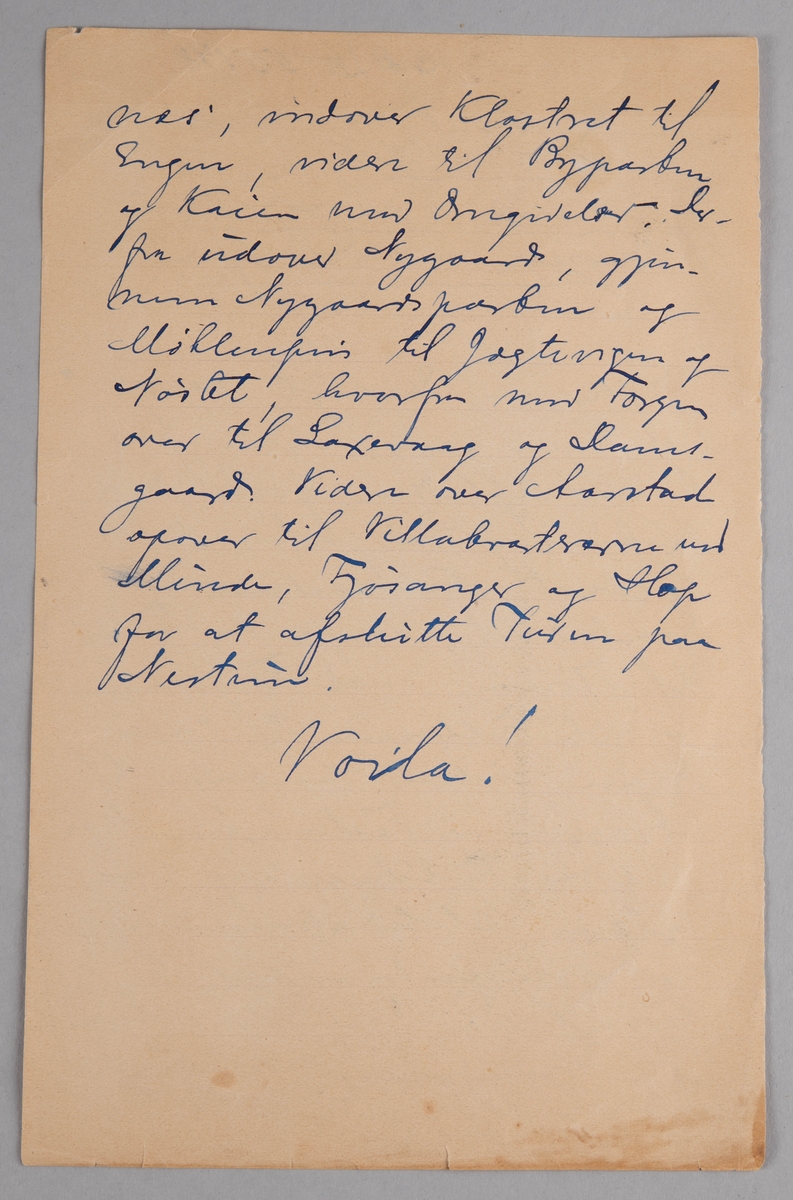 næs, indover Klostret til
Engen, videre til Byparken
og Kaien med Omgivelser. Der-
fra udover Nygaard, gjen-
nem Nygaardsparken og
Møhlenpris til Jægtevigen og
Nöstet, hvorfra med Færgen
over til Laxevaag og Dams-
gaard. Videre over Aarstad
opover til Villakvartererne ved
Minde, Fjösanger og Hop
for at afslutte Turen paa
Nestun.
Voila!